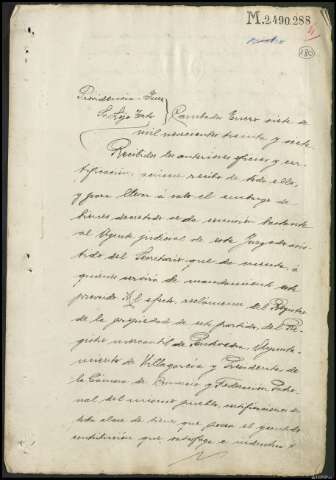 M.2490.288
180
Providencia Juez
Sr. Rojo
Cambados Enero siete de
mil novecientos treinta y siete.
Recibidos los anteriores oficios y cer-
tificación, acúsese recibo de todo ello,
y para llevar á cabo el embargo de
bienes decretado se da comisión bastante
al Agente judicial de este Juzgado asis-
tido del Secretario que da fe, á
quienes servirá de mandamiento este
proveído. Al efecto, reclámense del Registro
de la propiedad de este partido, del Re-
gistro mercantil de Pontevedra, Ayunta-
miento de Villagarcia y Presidentes de
la Cámara de Comercio y Federación Patro-
nal del mismo pueblo, certificaciones de
toda clase de bienes que posea el
contribución que satisfaga é